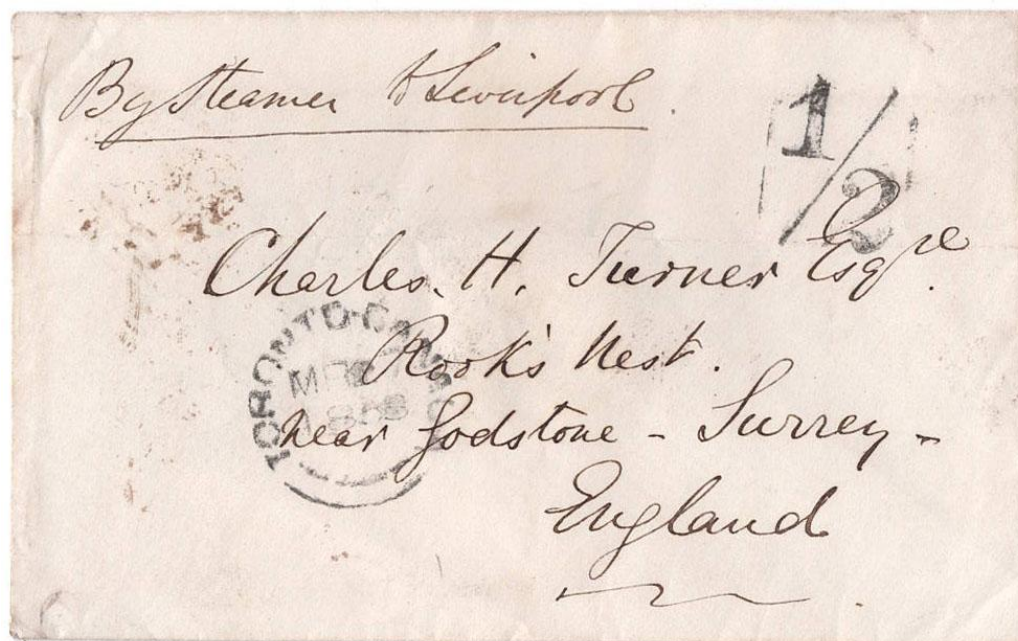 By Steamer to Liverpool.
1/2
Charles. H. Turner Esqre.
Rook's Nest.
near Godstone - Surrey -
England
TORONTO-CANADA